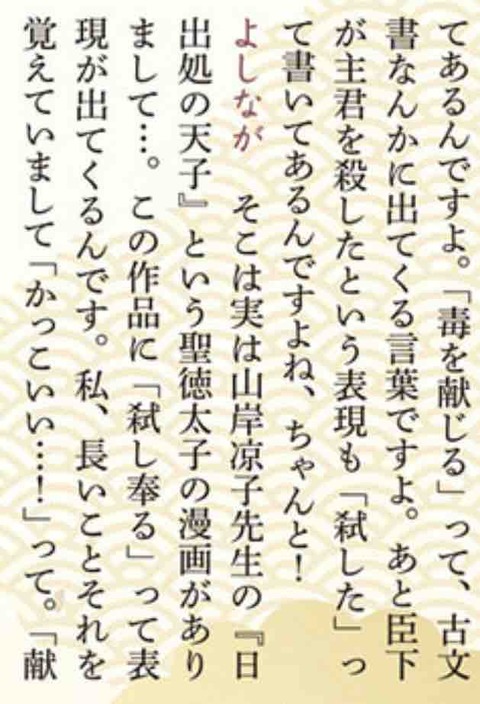 てあるんですよ。「毒を献じる」って、古文
書なんかに出てくる言葉ですよ。あと臣下
が主君を殺したという表現も「弑した」っ
て書いてあるんですよね、ちゃんと！
よしなが　そこは実は山岸凉子先生の『日
出処の天子』という聖徳太子の漫画があり
まして…。この作品に「弑し奉る」って表
現が出てくるんです。私、長いことそれを
覚えていまして「かっこいい…！」って。「献